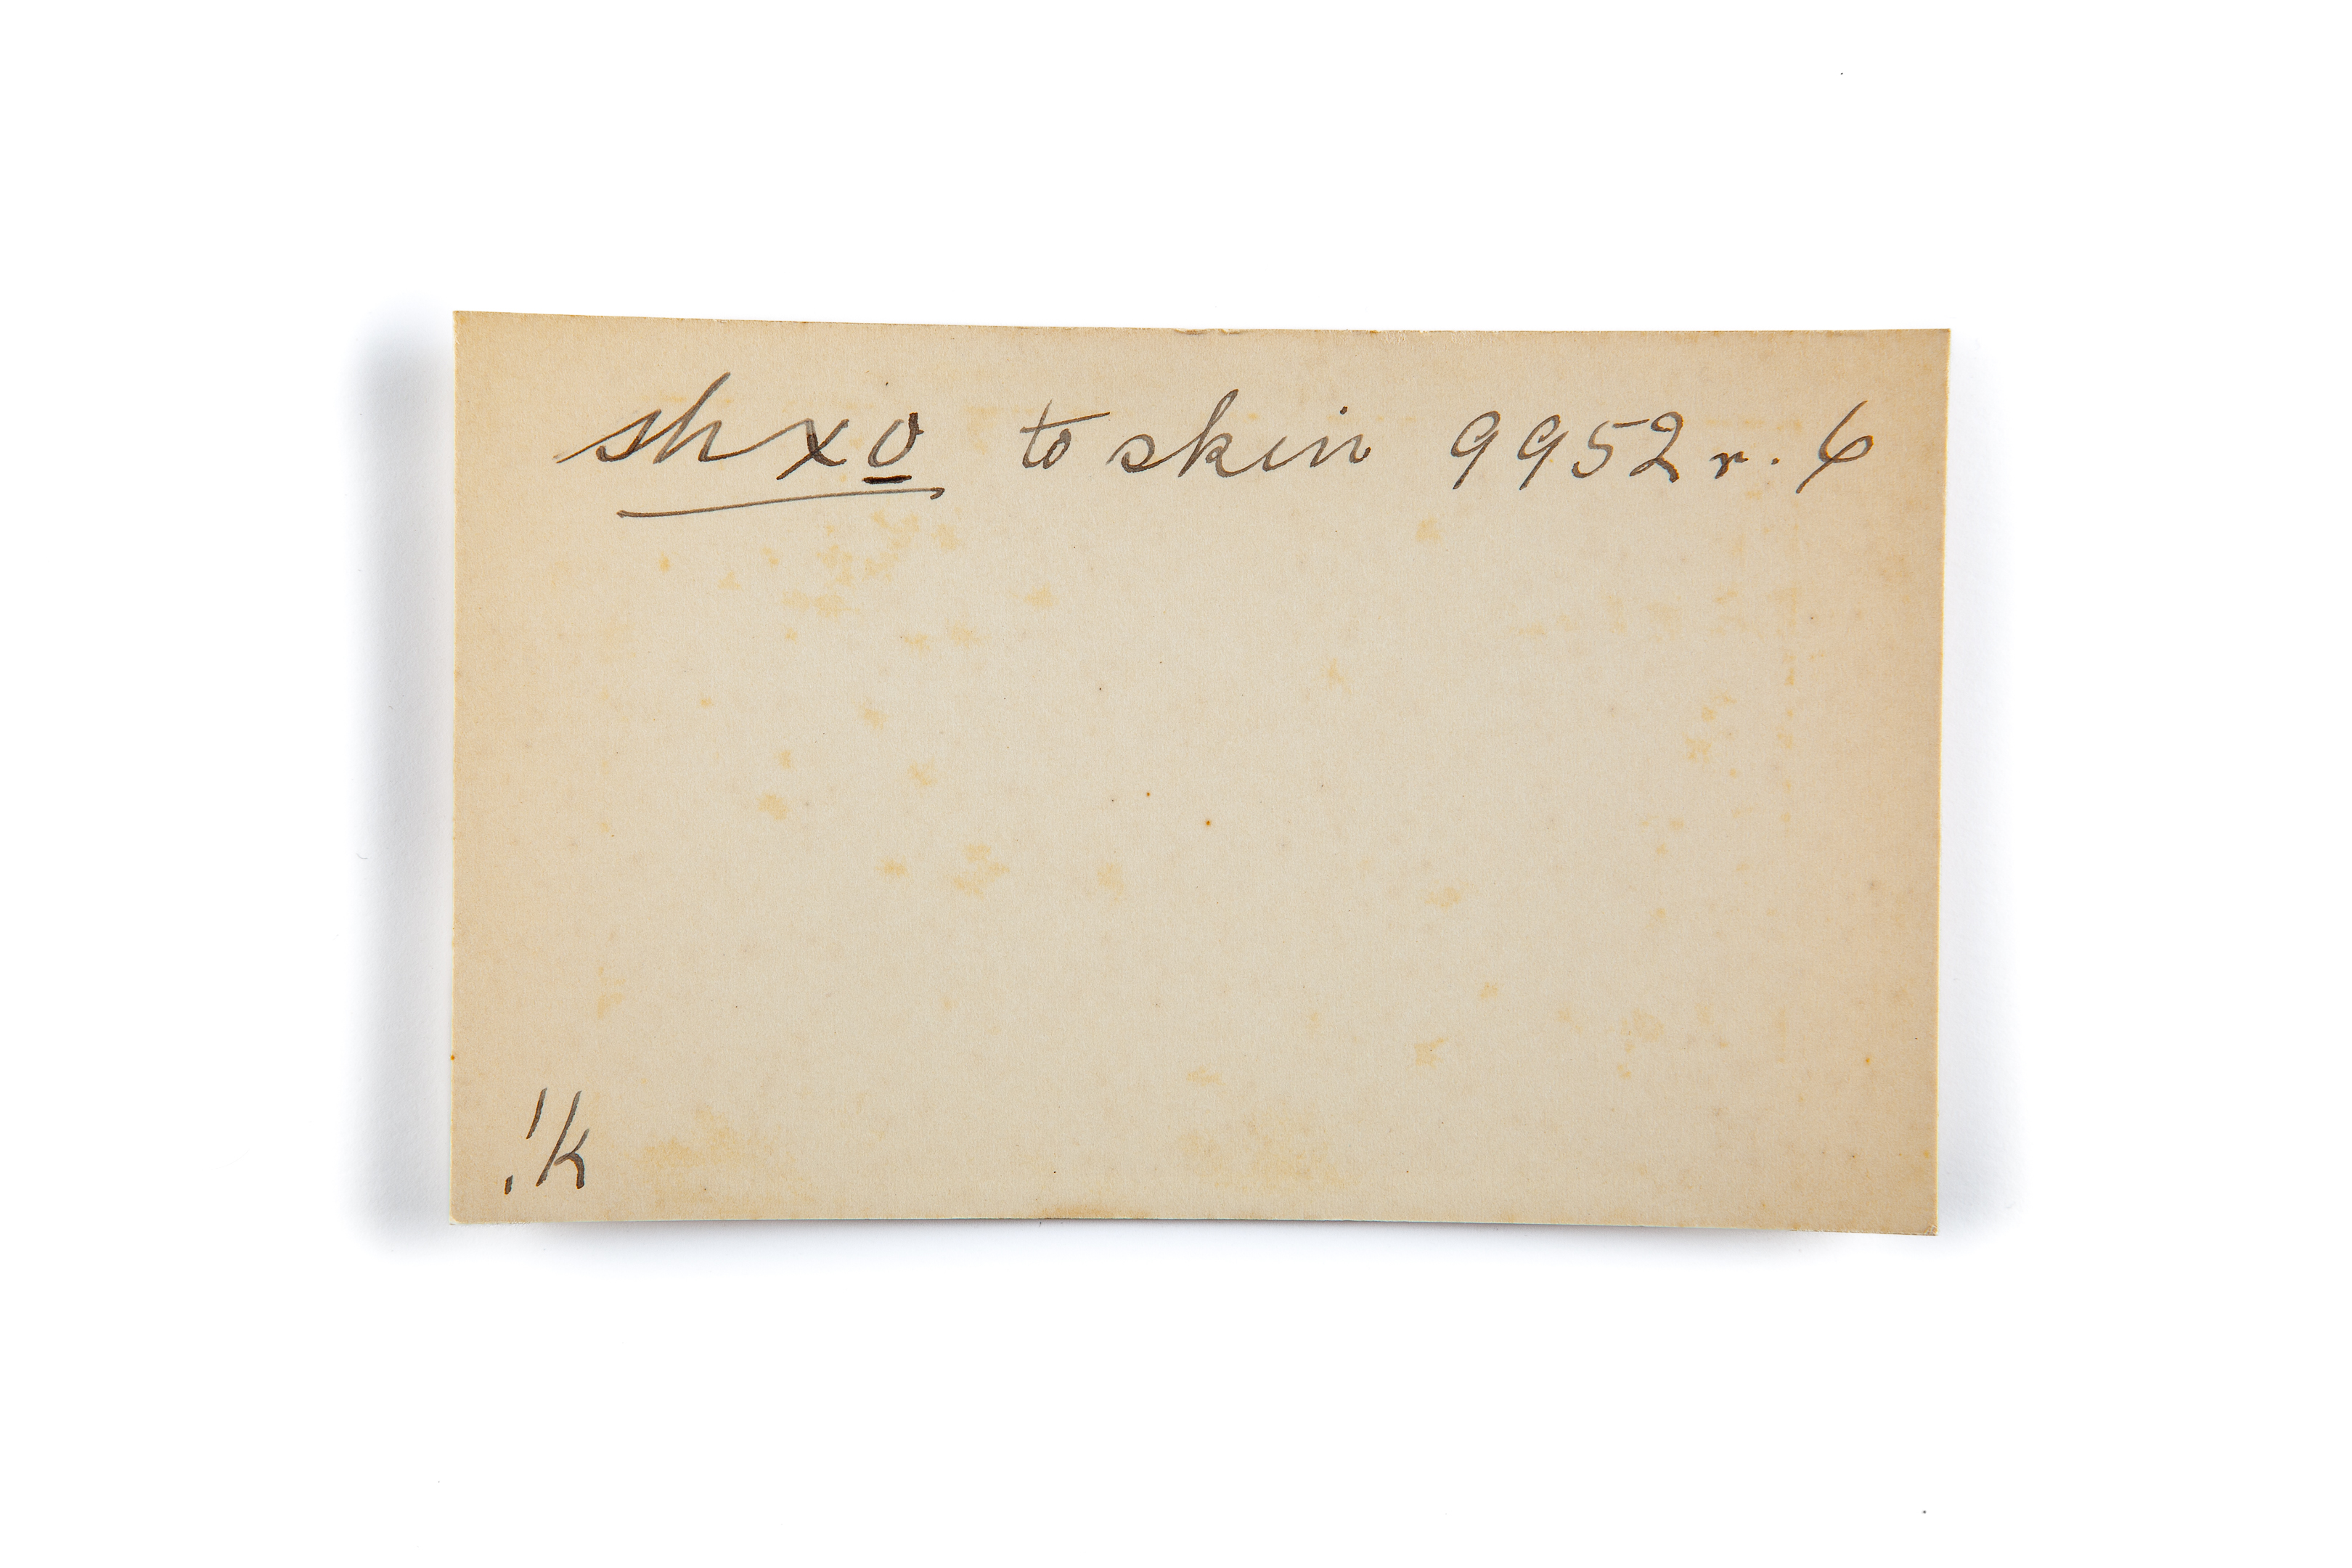 shxo̱ to skin 9952 r. 6
!k